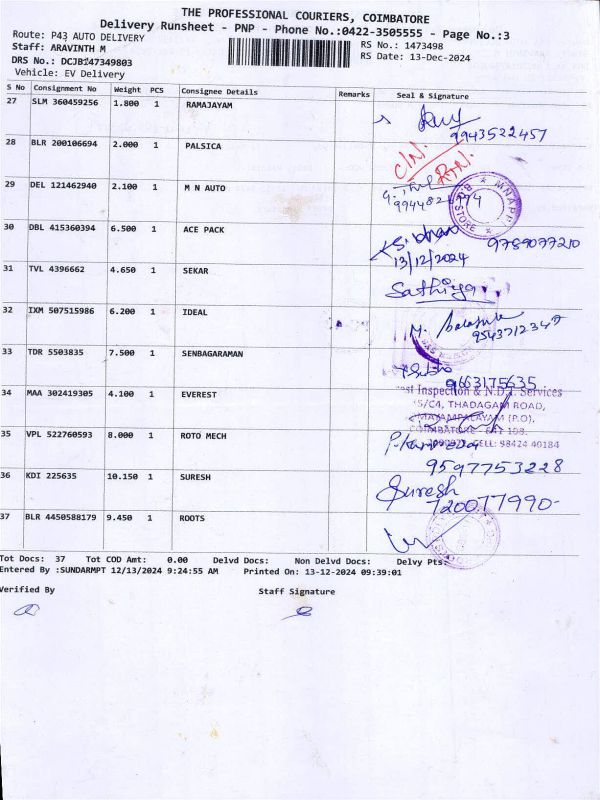 THE PROFESSIONAL COURIERS, COIMBATORE
Delivery Runsheet - PNP - Phone No.:0422-3505555 - Page No.:3
Route: P43 AUTO DELIVERY
RS No.: 1473498
Staff: ARAVINTH M
RS Date: 13-Dec-2024
DRS No.: DCJB147349803
Vehicle: EV Delivery
S No Consignment No Weight PCS Consignee Details Remarks Seal & Signature
27 SLM 360459256 1.800 1 RAMAJAYAM
9943522457
28 BLR 200106694 2.000 1 PALSICA
C/N.
RTN.
29 DEL 121462940 2.100 1 M N AUTO
MNAPP
STORE
30 DBL 415360394 6.500 1 ACE PACK
9789077210
13/12/2024
31 TVL 4396662 4.650 1 SEKAR
Sathiya
32 IXM 507515986 6.200 1 IDEAL
33 TDR 5503835 7.500 1 SENBAGARAMAN
9663175635
34 MAA 302419305 4.100 1 EVEREST
est Inspection & N.D.T. Services
15/C4, THADAGAM ROAD,
(P.O),
COIMBATORE
CELL: 98424 40184
35 VPL 522760593 8.000 1 ROTO MECH
9597753228
36 KDI 225635 10.150 1 SURESH
Suresh
720077990-
37 BLR 4450588179 9.450 1 ROOTS
Tot Docs: 37 Tot COD Amt: 0.00 Delvd Docs: Non Delvd Docs: Delvy Pts:
Entered By :SUNDARMPT 12/13/2024 9:24:55 AM Printed On: 13-12-2024 09:39:01
Verified By
Staff Signature